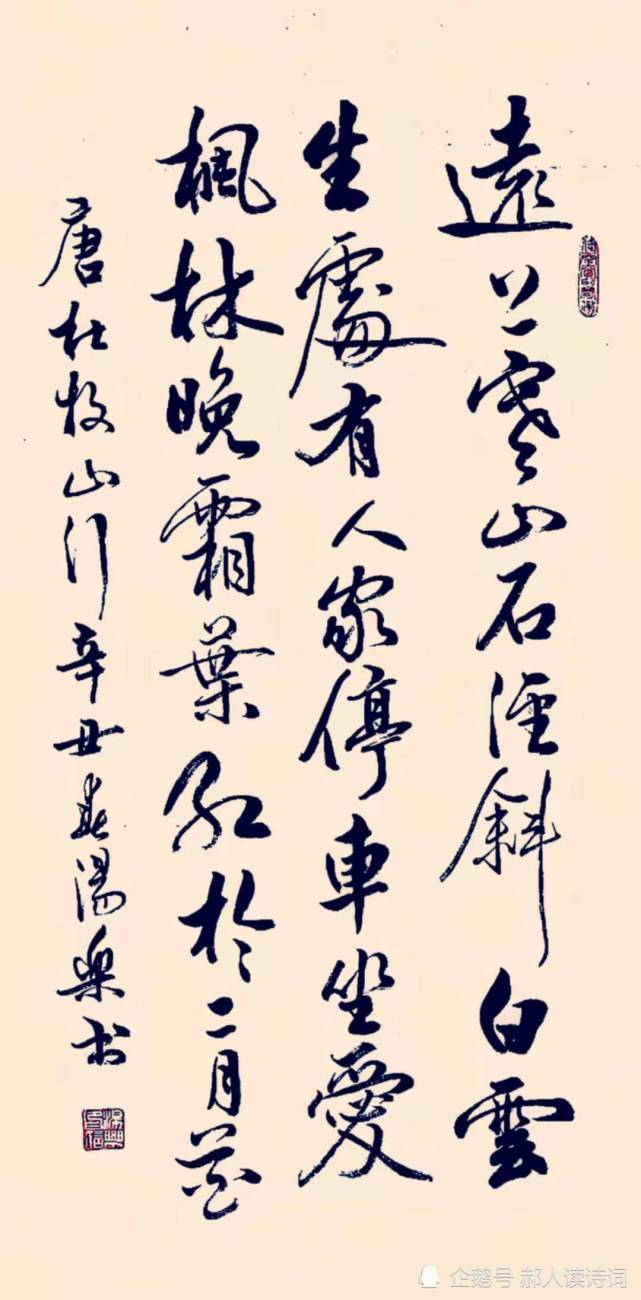 遠上寒山石徑斜白雲
生處有人家停車坐愛
楓林晚霜葉紅於二月花
唐杜牧山行辛丑春湯樂书
企鹅号 郝人读诗词